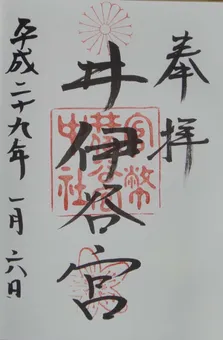 奉拝
井伊谷宮
官幣中社
平成二十九年一月六日